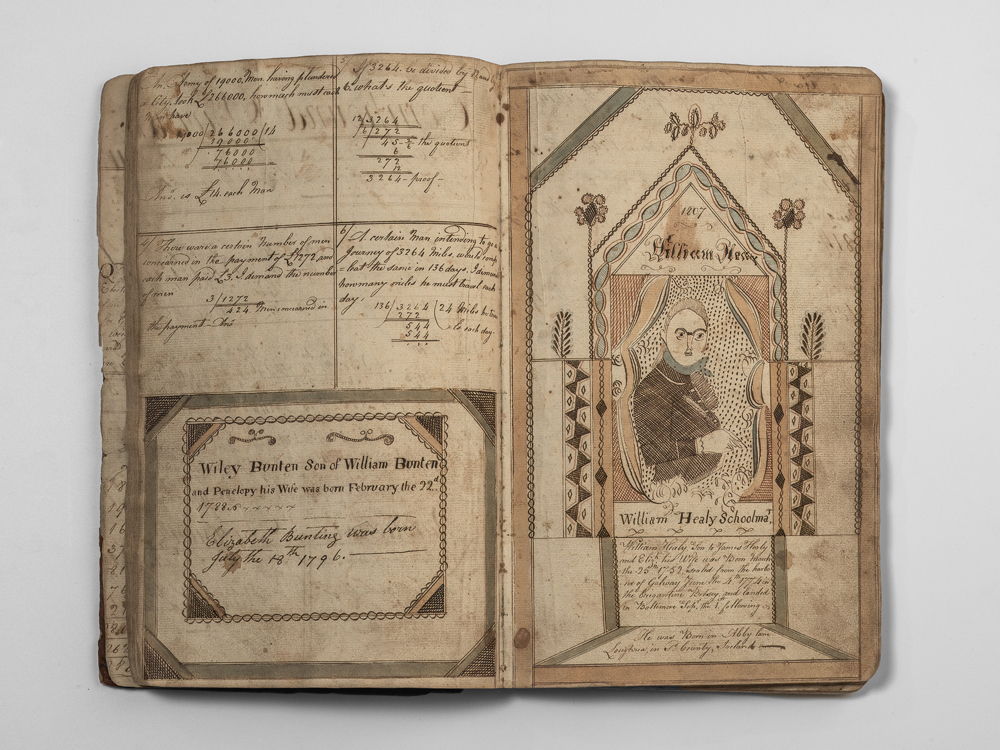 Army of 19000 Men having plundered
a City, took £266000, how much must each
have
19000)266000(14
19000
76000
76000
Ans. is £14. each Man
If 3264. be divided by 12 and by
6. what's the quotient
12)3264
6)272
45-2/6 the quotient
6
272
12
3264 - proof -
4/ There were a certain Number of men
concerned in the payment of £1272 and
each man paid £3. I demand the number
of men
3)1272
424 Men concerned in
the payment. -
6/ A certain Man intending to go a
Journey of 3264 Mile, would comp
=leat the same in 136 days. I demand
how many miles he must travel each
day.
136)3264(24 Miles he
272
544
544
each day.
Wiley Bunten Son of William Bunten
and Penelopy his Wife was born February the 22d
1788
Elizabeth Bunting was born
July the 18th 1796.
1807
William
William Healy Schoolmar
William Healy Son to James Healy
and his Wife was Born March
the 25th 1752. Sealed from the harbo
=ur of Galway June the 4th 1774 in
the Brigantine Betsey and landed
in Baltimore Sep. the 1st following
He was Born in Abby lane
Loughrea, in County, Ireland